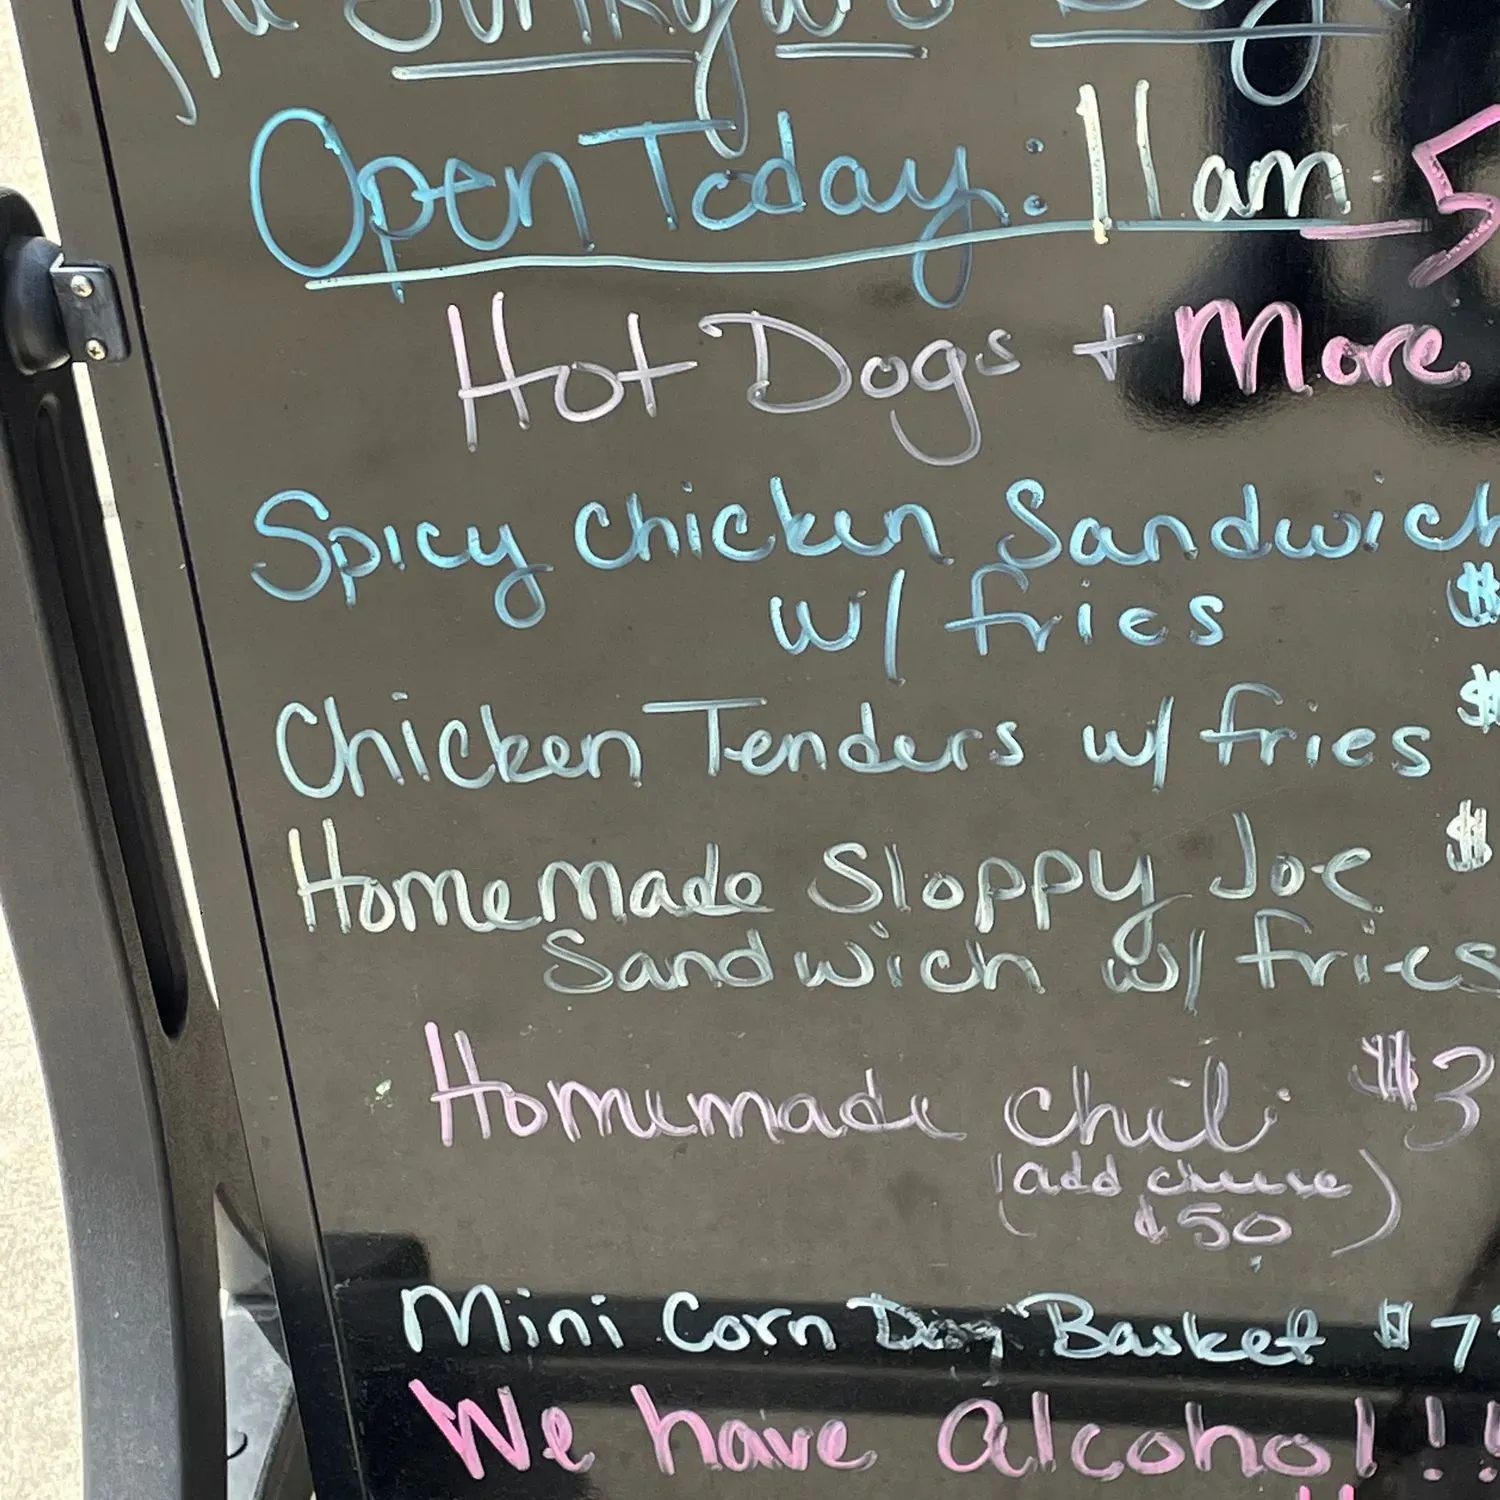 The Junkyard
Open Today: 11am - 5
Hot Dogs + More
Spicy Chicken Sandwich
w/ fries $
Chicken Tenders w/ fries $
Homemade Sloppy Joe $
Sandwich w/ fries
Homemade chili $3
(add cheese
¢50)
Mini Corn Dog Basket $7
We have Alcohol!!